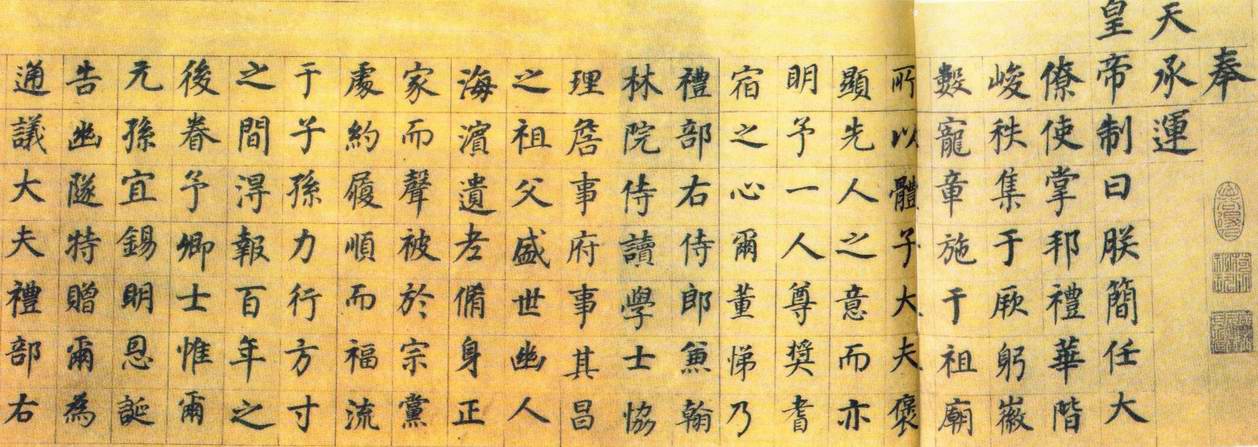 奉
天承運
皇帝制曰朕簡任大
僚使掌邦禮華階
峻秩集于厥躬徽
數寵章施于祖廟
所以體子大夫褒
顯先人之意而亦
明予一人尊獎耆
宿之心爾董悌乃
禮部右侍郎兼翰
林院侍讀學士協
理詹事府事其昌
之祖父盛世幽人
海濱遺老脩身正
家而聲被於宗黨
處約履順而福流
于子孫力行方寸
之間淂報百年之
後眷予卿士惟爾
元孫宜錫明恩誕
告幽隧特贈爾為
通議大夫禮部右